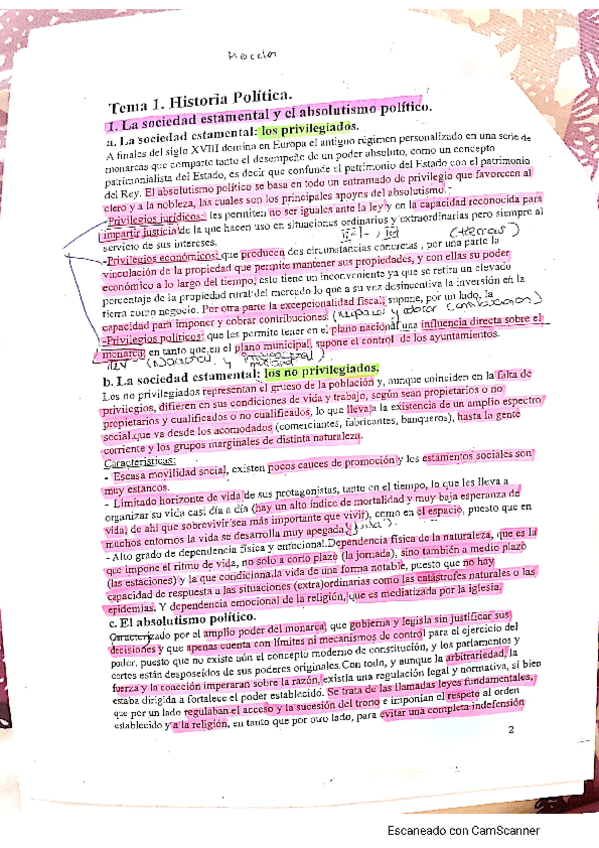 Tema 1. Historia Política.
1. La sociedad estamental y el absolutismo político.
a. La sociedad estamental: los privilegiados.
A finales del siglo XVIII domina en Europa el antiguo régimen personalizado en una serie de
monarcas que comparte tanto el desempeño de un poder absoluto, como un concepto
patrimonialista del Estado, es decir que confunde el patrimonio del Estado con el patrimonio
del Rey. El absolutismo político se basa en todo un entramado de privilegio que favorecen al
clero y a la nobleza, las cuales son los principales apoyes del absolutismo.
-Privilegios jurídicos: les permiten no ser iguales ante la ley y en la capacidad reconocida para
impartir justicia de la que hacen uso en situaciones ordinarios y extraordinarias pero siempre al
servicio de sus intereses.
-Privilegios económicos: que producen dos circunstancias concretas , por una parte la
vinculación de la propiedad que permite mantener sus propiedades, y con ellas su poder
económico a lo largo del tiempo; esto tiene un inconveniente ya que se retira un elevado
porcentaje de la propiedad rural del mercado lo que a su vez desincentiva la inversión en la
tierra como negocio. Por otra parte la excepcionalidad fiscal, supone, por un lado, la
capacidad para imponer y cobrar contribuciones.
-Privilegios políticos: que les permite tener en el plano nacional una influencia directa sobre el
monarca, en tanto que en el plano municipal, supone el control de los ayuntamientos.
b. La sociedad estamental: los no privilegiados.
Los no privilegiados representan el grueso de la población y, aunque coinciden en la falta de
privilegios, difieren en sus condiciones de vida y trabajo, según sean propietarios o no
propietarios y cualificados o no cualificados, lo que lleva a la existencia de un amplio espectro
social que va desde los acomodados (comerciantes, fabricantes, banqueros), hasta la gente
corriente y los grupos marginales de distinta naturaleza.
Características:
- Escasa movilidad social, existen pocos cauces de promoción y los estamentos sociales son
muy estancos.
- Limitado horizonte de vida de sus protagonistas, tanto en el tiempo, lo que les lleva a
organizar su vida casi día a día (hay un alto índice de mortalidad y muy baja esperanza de
vida, de ahí que sobrevivir sea más importante que vivir), como en el espacio, puesto que en
muchos entornos la vida se desarrolla muy apegada
- Alto grado de dependencia física y emocional. Dependencia física de la naturaleza, que es la
que impone el ritmo de vida, no solo a corto plazo (la jornada), sino también a medio plazo
(las estaciones) y la que condiciona la vida de una forma notable, puesto que no hay
capacidad de respuesta a las situaciones (extra)ordinarias como las catástrofes naturales o las
epidemias. Y dependencia emocional de la religión, que es mediatizada por la iglesia.
c. El absolutismo político.
Caracterizado por el amplio poder del monarca, que gobierna y legisla sin justificar sus
decisiones y que apenas cuenta con límites ni mecanismos de control para el ejercicio del
poder, puesto que no existe aún el concepto moderno de constitución, y los parlamentos y
cortes están desposeídos de sus poderes originales. Con todo, y aunque la arbitrariedad, la
fuerza y la coacción imperaran sobre la razón, existía una regulación legal y normativa, si bien
estaba dirigida a fortalece el poder establecido. Se trata de las llamadas leyes fundamentales,
que por un lado regulaban el acceso y la sucesión del trono e imponían el respeto al orden
establecido y a la religión, en tanto que por otro lado, para evitar una completa indefensión
2
Escaneado con CamScanner